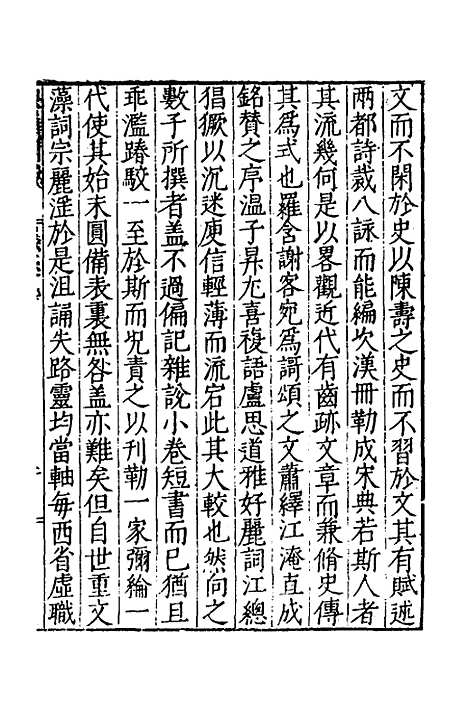 文而不閑於史以陳壽之史而不習於文其有賦述
兩都詩裁八詠而能編次漢冊勒成宋典若斯人者
其流幾何是以畧觀近代有齒跡文章而兼脩史傳
其為式也羅含謝客宛為謌頌之文蕭繹江淹直成
銘贊之序溫子昇尤喜複語盧思道雅好麗詞江總
猖獗以沉迷庾信輕薄而流宕此其大較也然向之
數子所撰者盖不過偏記雜說小卷短書而已猶且
乖濫踳駁一至於斯而况責之以刋勒一家彌綸一
代使其始末圓備表裏無咎盖亦難矣但自世重文
藻詞宗麗淫於是沮誦失路靈均當軸每西省虛職